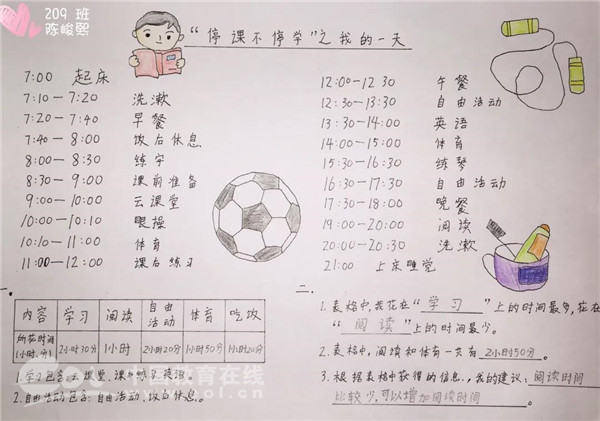 209 班
陈峻熙
“停课不停学”之我的一天
7:00 起床
7:10—7:20 洗漱
7:20—7:40 早餐
7:40—8:00 饭后休息
8:00—8:30 练字
8:30—9:00 课前准备
9:00—10:00 云课堂
10:00—10:10 眼操
10:10—11:00 体育
11:00—12:00 课后练习
12:00—12:30 午餐
12:30—13:30 自由活动
13:30—14:00 英语
14:00—15:00 体育
15:30—16:30 练琴
16:30—17:30 自由活动
17:30—18:00 晚餐
19:00—20:00 阅读
20:00—20:30 洗漱
21:00 上床睡觉
一.
内容 学习 阅读 自由活动 体育 吃饭
所花时间(小时、分) 2小时30分 1小时 2小时20分 1小时50分 1小时20分
1.学习包含:云课堂、课后练习、英语。
2.自由活动包含:自由活动、饭后休息。
二.
1.表格中,我花在“学习”上的时间最多,花在
“阅读”上的时间最少。
2.表格中,阅读和体育一共有2小时50分。
3.根据表格中获得的信息,我的建议:阅读时间
比较少,可以增加阅读时间。
中国教育在线